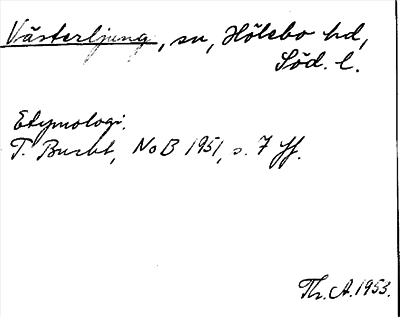 Västerljung, sn, Hölebo hd,
Söd. l.
Etymologi.
T. Bucht, NoB 1951, s. 7 ff.
Th. A. 1953.